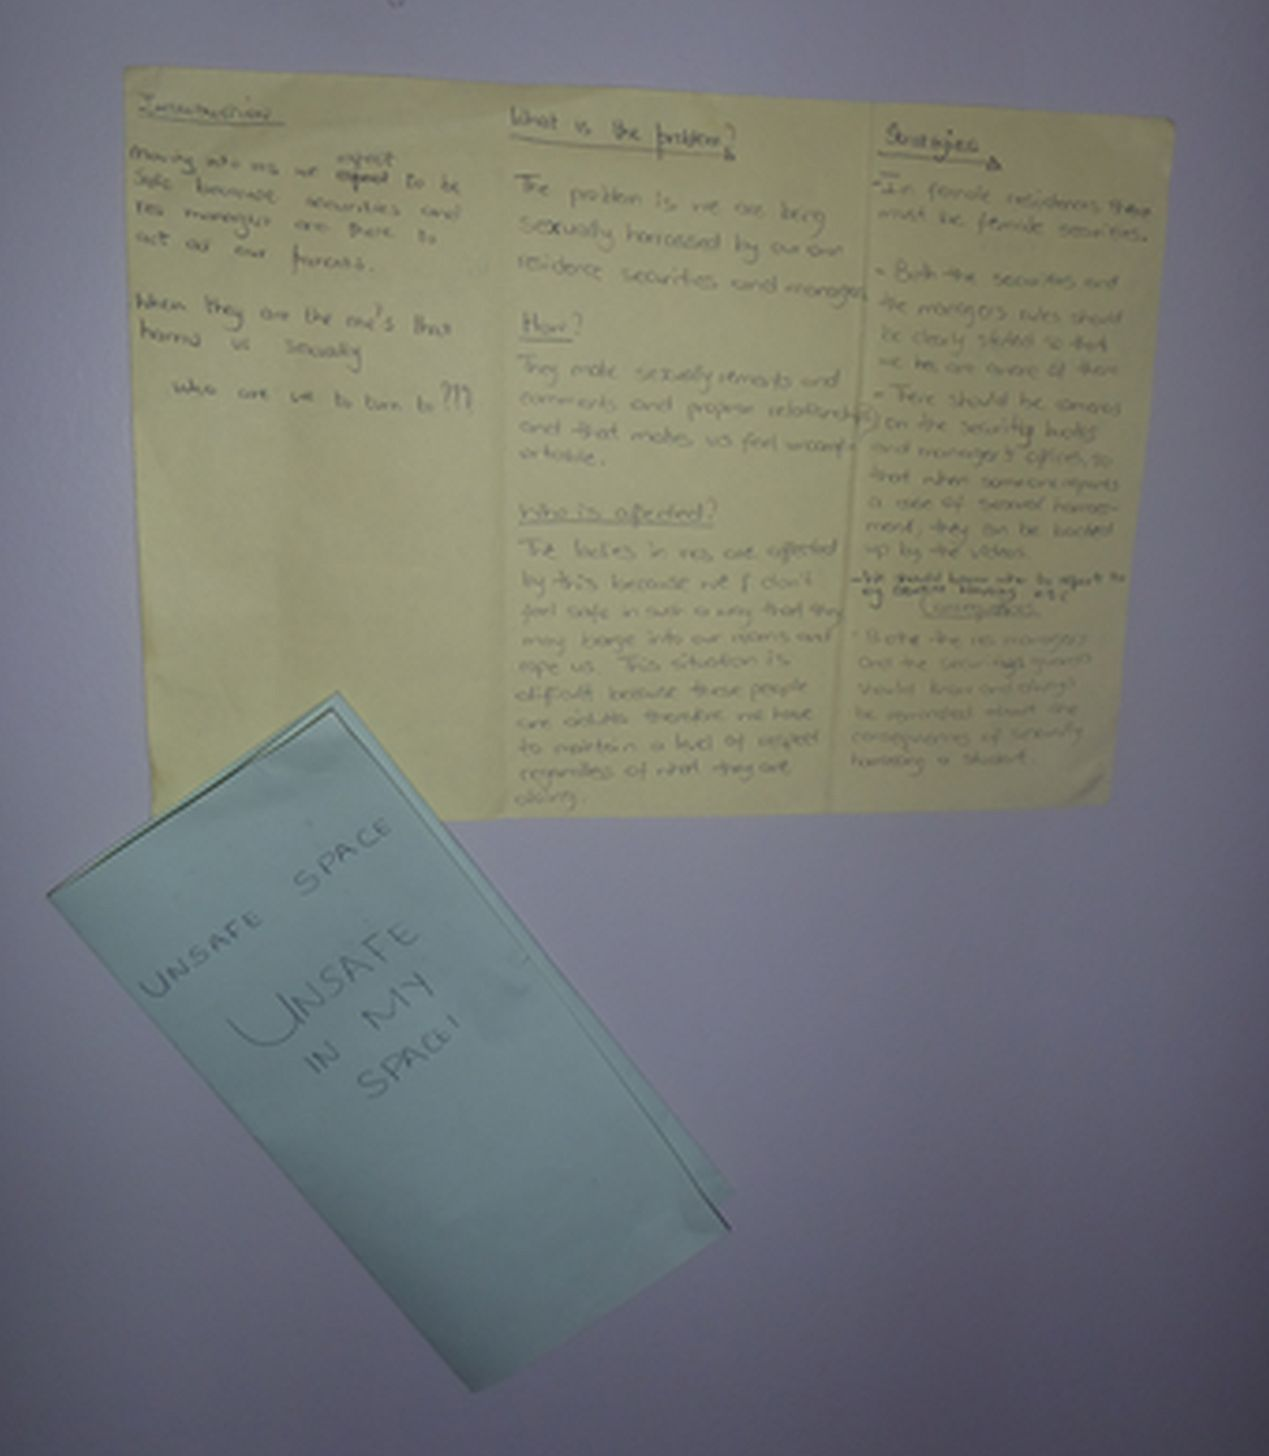 Introduction
Moving into res we expect
expect to be
safe because securities and
res manager are there to
act as our parents.
When they are the one's that
harras us sexually
who are we to turn to???
What is the problem?
The problem is we are being
sexually harrassed by our own
residence securities and manager
How?
They make sexually remarks and
comments and propose relationship(s)
and that makes us feel uncomf-
ortable.
Who is affected?
The ladies in res are affected
by this because we don't
feel safe in such a way that they
may barge into our rooms and
rape us. This situation is
difficult because these people
are adults therefore we have
to maintain a level of respect
regardless of what they are
doing.
Strategies
- In female residences there
must be female securities.
- Both the securities and
the managers rules should
be clearly stated so that
we are aware of them
- There should be cameras
on the security
and manager's offices, so
that when someone reports
a case of sexual harass-
ment, they can be backed
up by the videos.
- We should know who to report to
eg housing etc
- Both the res managers
and the security guards
should know and always
be reminded about the
consequences of sexually
harrasing a student.
UNSAFE SPACE
UNSAFE
IN MY
SPACE!